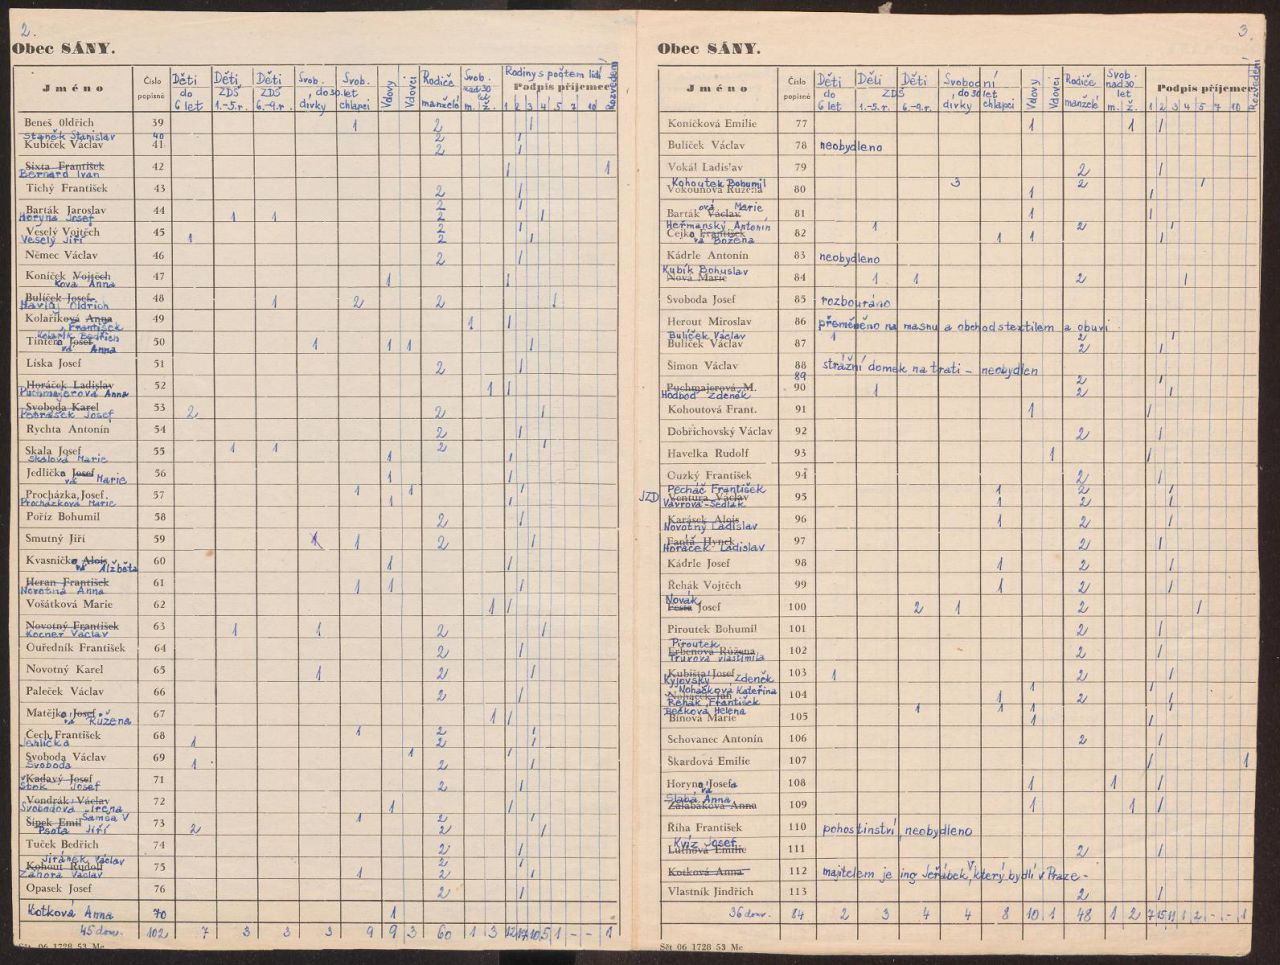 2.
Obec SÁNY.
Jméno Číslo popisné Děti do 6 let Děti ZDŠ 1.-5.r. Děti ZDŠ 6.-9.r. Svob. do 30 let dívky Svob. chlapci Vdovy Vdovci Rodiče manželé Svob. nad 30 let m. ž. Rodiny s počtem lidí Podpis příjemce 1 2 3 4 5 7 10 Rozvedení
Beneš Oldřich 39 1 2 1
Staněk Stanislav 40 2 1
Kubíček Václav 41 2 1
Sixta František 42 1 1
Bernard Ivan
Tichý František 43 2 1
Barták Jaroslav 44 2 1
Horyna Josef 1 1 2 1
Veselý Vojtěch 45 2 1
Veselý Jiří 1 2 1
Němec Václav 46 2 1
Koníček Vojtěch 47 1 1
ková Anna
Bulíček Josef 48 1 2 2 1
Havlůj Oldřich
Kolaříková Anna 49 1 1
František
Kolařík Bedřich
Tintěra Josef 50 1 1 1 2 1
vá Anna
Líska Josef 51 2 1
Horáček Ladislav 52 1 1
Puchmajerová Anna
Svoboda Karel 53 2 2 1
Petrásek Josef
Rychta Antonín 54 2 1
Skala Josef 55 1 1 2 1
Skalová Marie 1 1
Jedlička Josef 56 1 1
vá Marie
Procházka Josef 57 1 1 1
Procházková Marie 1 1
Poříz Bohumil 58 2 1
Smutný Jiří 59 1 1 2 1
Kvasnička Alois 60 1 1
vá Alžběta
Heran František 61 1 1 1
Novotná Anna
Vošátková Marie 62 1 1
Novotný František 63 1 1 2 1
Kocner Václav
Ouředník František 64 2 1
Novotný Karel 65 1 2 1
Paleček Václav 66 2 1
Matějka Josef 67 1 1
vá Růžena
Čech František 68 1 2 1
Jehlička 1 2 1
Svoboda Václav 69 1 1
Svoboda 1 2 1
Kadavý Josef 71 2 1
Štok Josef
Vondrák Václav 72 1 1
Svobodová Irena
Šamša V
Šípek Emil 73 1 2 1
Psota Jiří 2 2 1
Tuček Bedřich 74 2 1
Jiránek Václav 2 1
Kohout Rudolf 75
Záhora Václav 1 2 1
Opasek Josef 76 2 1
Kotková Anna 70 1
45 dom. 102 7 3 3 3 9 9 3 60 1 3 12 17 10 5 1 - - 1
Sět 06 1728 53 Mc
3.
Obec SÁNY.
Jméno Číslo popisné Děti do 6 let Děti ZDŠ 1.-5.r. Děti 6.-9.r. Svobodní do 30 let dívky chlapci Vdovy Vdovci Rodiče manželé Svob. nad 30 let m. ž. Podpis příjemce 1 2 3 4 5 7 10 Rozvedení
Koníčková Emilie 77 1 1 1
Bulíček Václav 78 neobydleno
Vokál Ladislav 79 2 1
Kohoutek Bohumil 3 2 1
Vokounová Růžena 80 1 1
ová Marie
Barták Václav 81 1 1
Heřmanský Antonín 1 2 1
Čejka František 82 1 1 1
vá Božena
Kádrle Antonín 83 neobydleno
Kubík Bohuslav
Nová Marie 84 1 1 2 1
Svoboda Josef 85 rozbouráno
Herout Miroslav 86 přeměněno na masnu a obchod s textilem a obuví
Bulíček Václav 1 2 1
Bulíček Václav 87 2 1
Šimon Václav 88 strážní domek na trati – neobydlen
89 2 1
Puchmajerová M. 90 1 2 1
Hodboď Zdeněk
Kohoutová Frant. 91 1 1
Dobřichovský Václav 92 2 1
Havelka Rudolf 93 1 1
Ouzký František 94 2 1
Pecháč František 1 2 1
JZD Ventura Václav 95
Vávrová-Sedlák 1 2 1
Karásek Alois 96 1 2 1
Novotný Ladislav
Fanta Hynek 97 2 1
Horáček Ladislav
Kádrle Josef 98 1 2 1
Řehák Vojtěch 99 1 2 1
Novák
Josef 100 2 1 2 1
Piroutek Bohumil 101 2 1
Piroutek
Erbenová Růžena 102 2 1
Truxová Vlastimila
Kubišta Josef 103 1 2 1
Kyjovský Zdeněk
Noháčková Kateřina 1 1
104 1 2 1
Řehák František
Bečková Helena 1 1 1 1
Bínová Marie 105 1 1
Schovanec Antonín 106 2 1
Škardová Emilie 107 1
Horyna Josefa 108 1 1 1
vá
Slabá Anna
Zalabáková Anna 109 1 1 1
Říha František 110 pohostinství, neobydleno
Kvíz Josef
Luthová Emilie 111 2 1
Kotková Anna 112 majitelem je ing Jeřábek, který bydlí v Praze -
Vlastník Jindřich 113 2 1
36 dom. 84 2 3 4 4 8 10 1 48 1 2 7 15 11 1 2 - - 1
Sět 06 1728 53 Mc